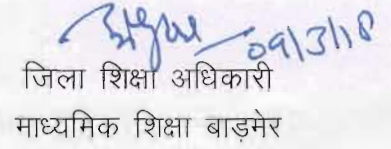 09/3/18
जिला शिक्षा अधिकारी
माध्यमिक शिक्षा बाड़मेर